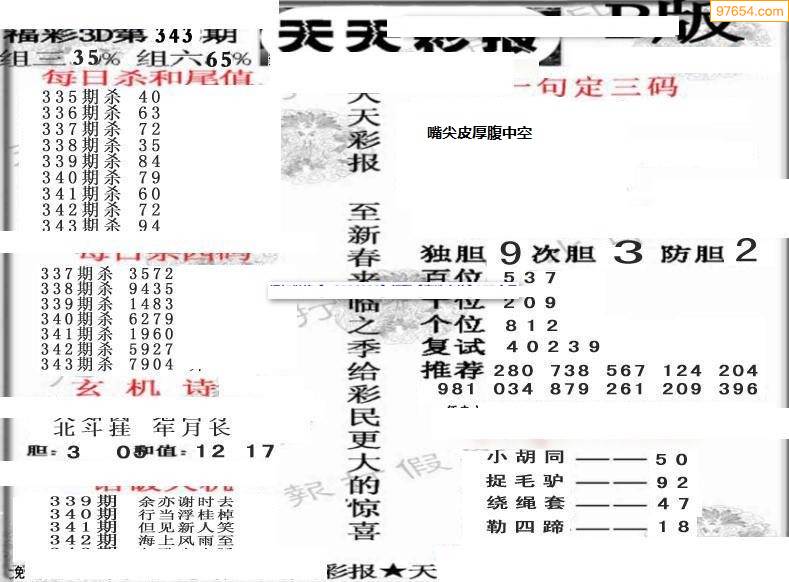 97654.com
福彩3D第343期
天天彩报
B版
组三35% 组六65%
每日杀和尾值
335期杀 40
336期杀 63
337期杀 72
338期杀 35
339期杀 84
340期杀 79
341期杀 60
342期杀 72
343期杀 94
每日杀四码
337期杀 3572
338期杀 9435
339期杀 1483
340期杀 6279
341期杀 1960
342期杀 5927
343期杀 7904
玄机诗
北斗挂 年月长
胆:3 05 和值:12 17
339期 余亦谢时去
340期 行当浮桂棹
341期 但见新人笑
342期 海上风雨至
天彩报
至新春来临之季给彩民更大的惊喜
一句定三码
嘴尖皮厚腹中空
独胆9次胆3防胆2
百位 537
十位 209
个位 812
复试 40239
推荐 280 738 567 124 204
981 034 879 261 209 396
小胡同——50
捉毛驴——92
绕绳套——47
勒四蹄——18
免
彩报★天